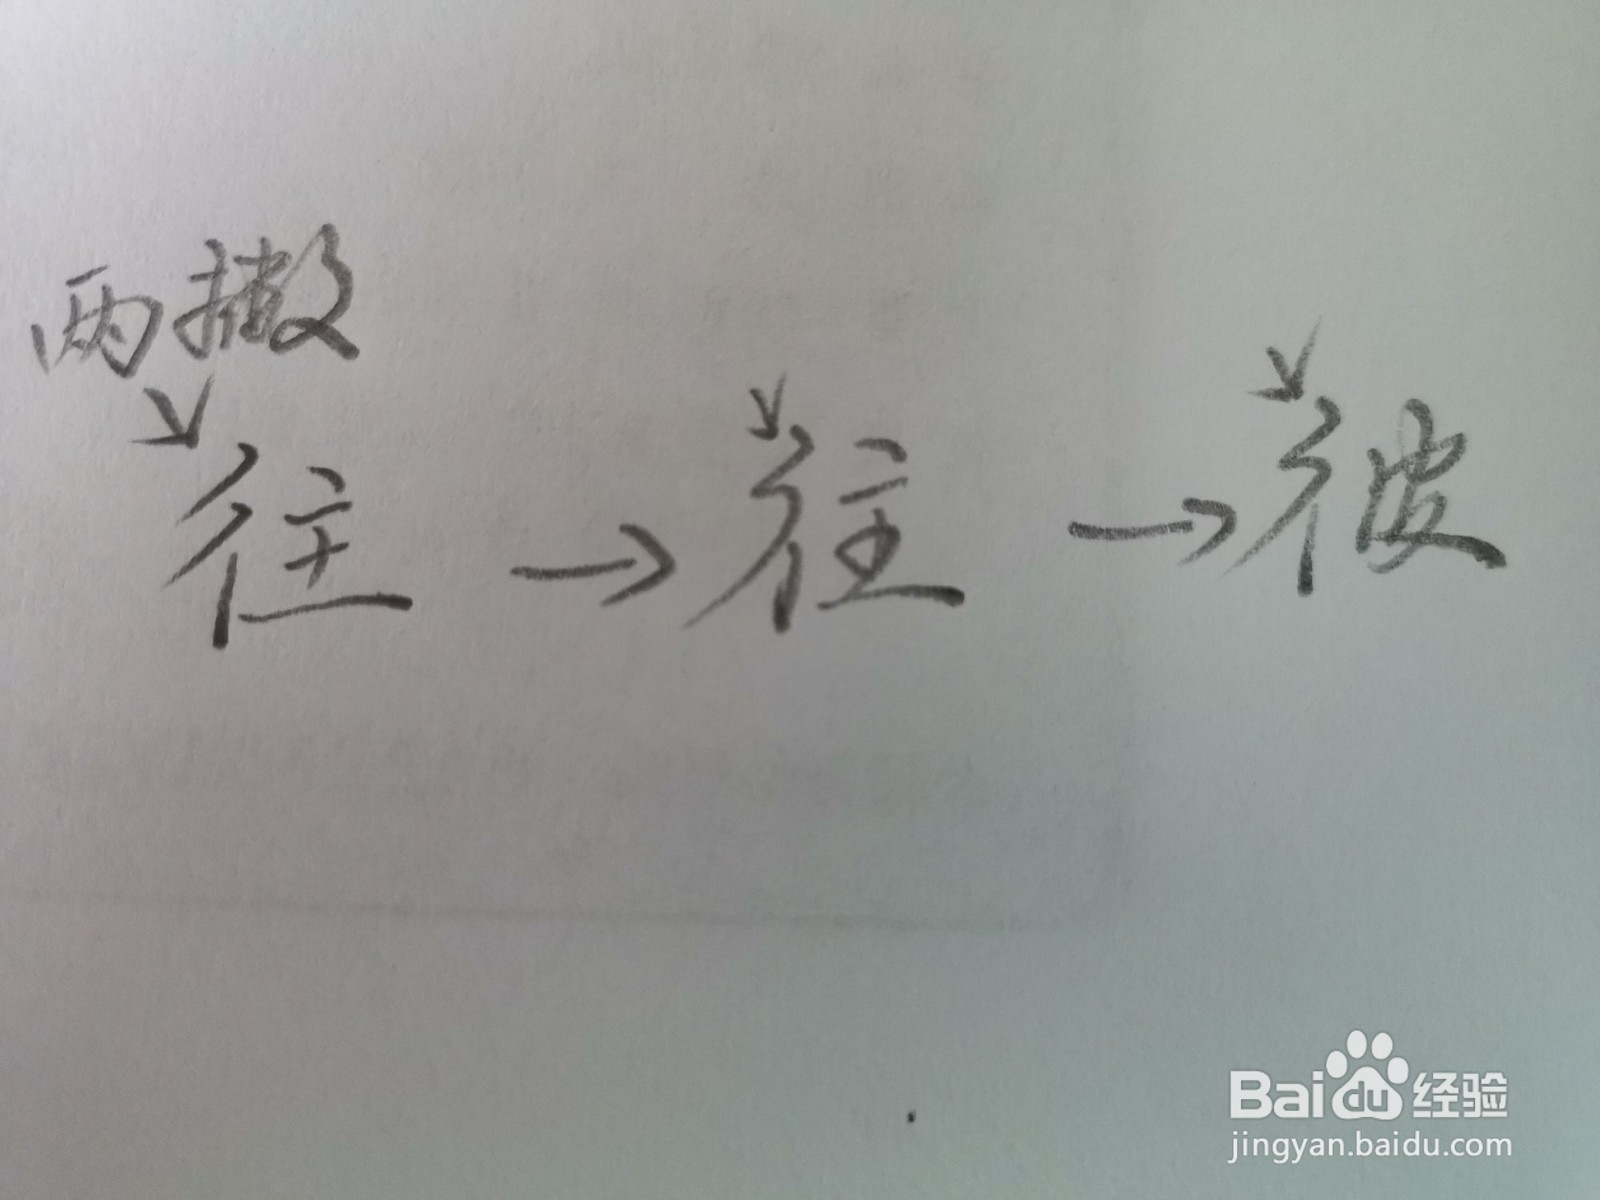 两撇
往 → 往 → 彼
Baidu 经验
jingyan.baidu.com